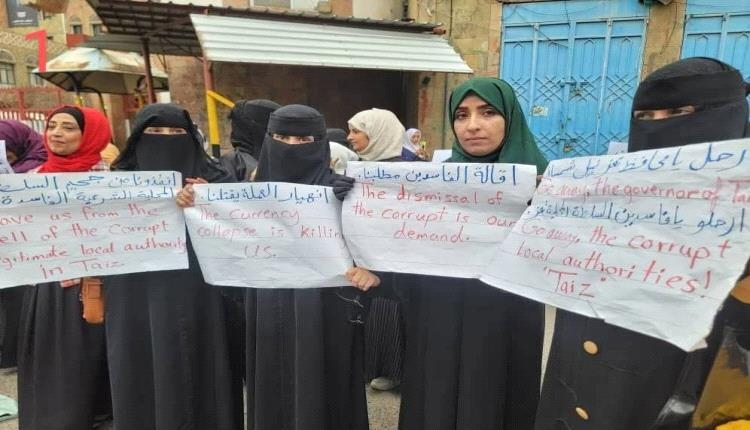 1
انقذونا من جحيم السلطة
المحلية الشرعية الفاسدة
ave us from the
ell of the Corrupt
egitimate local authority
in Taiz.
انهيار العملة يقتلنا
The currency
collapse is killing
us.
اقالة الفاسدين مطلبنا.
The dismissal of
the corrupt is our
demand.
ارحل يا محافظ
Go away, the governor of Ta
ارحلو يا فاسدين السلطة المحلية
Go away, the corrupt
Local authorities!
"Taiz"